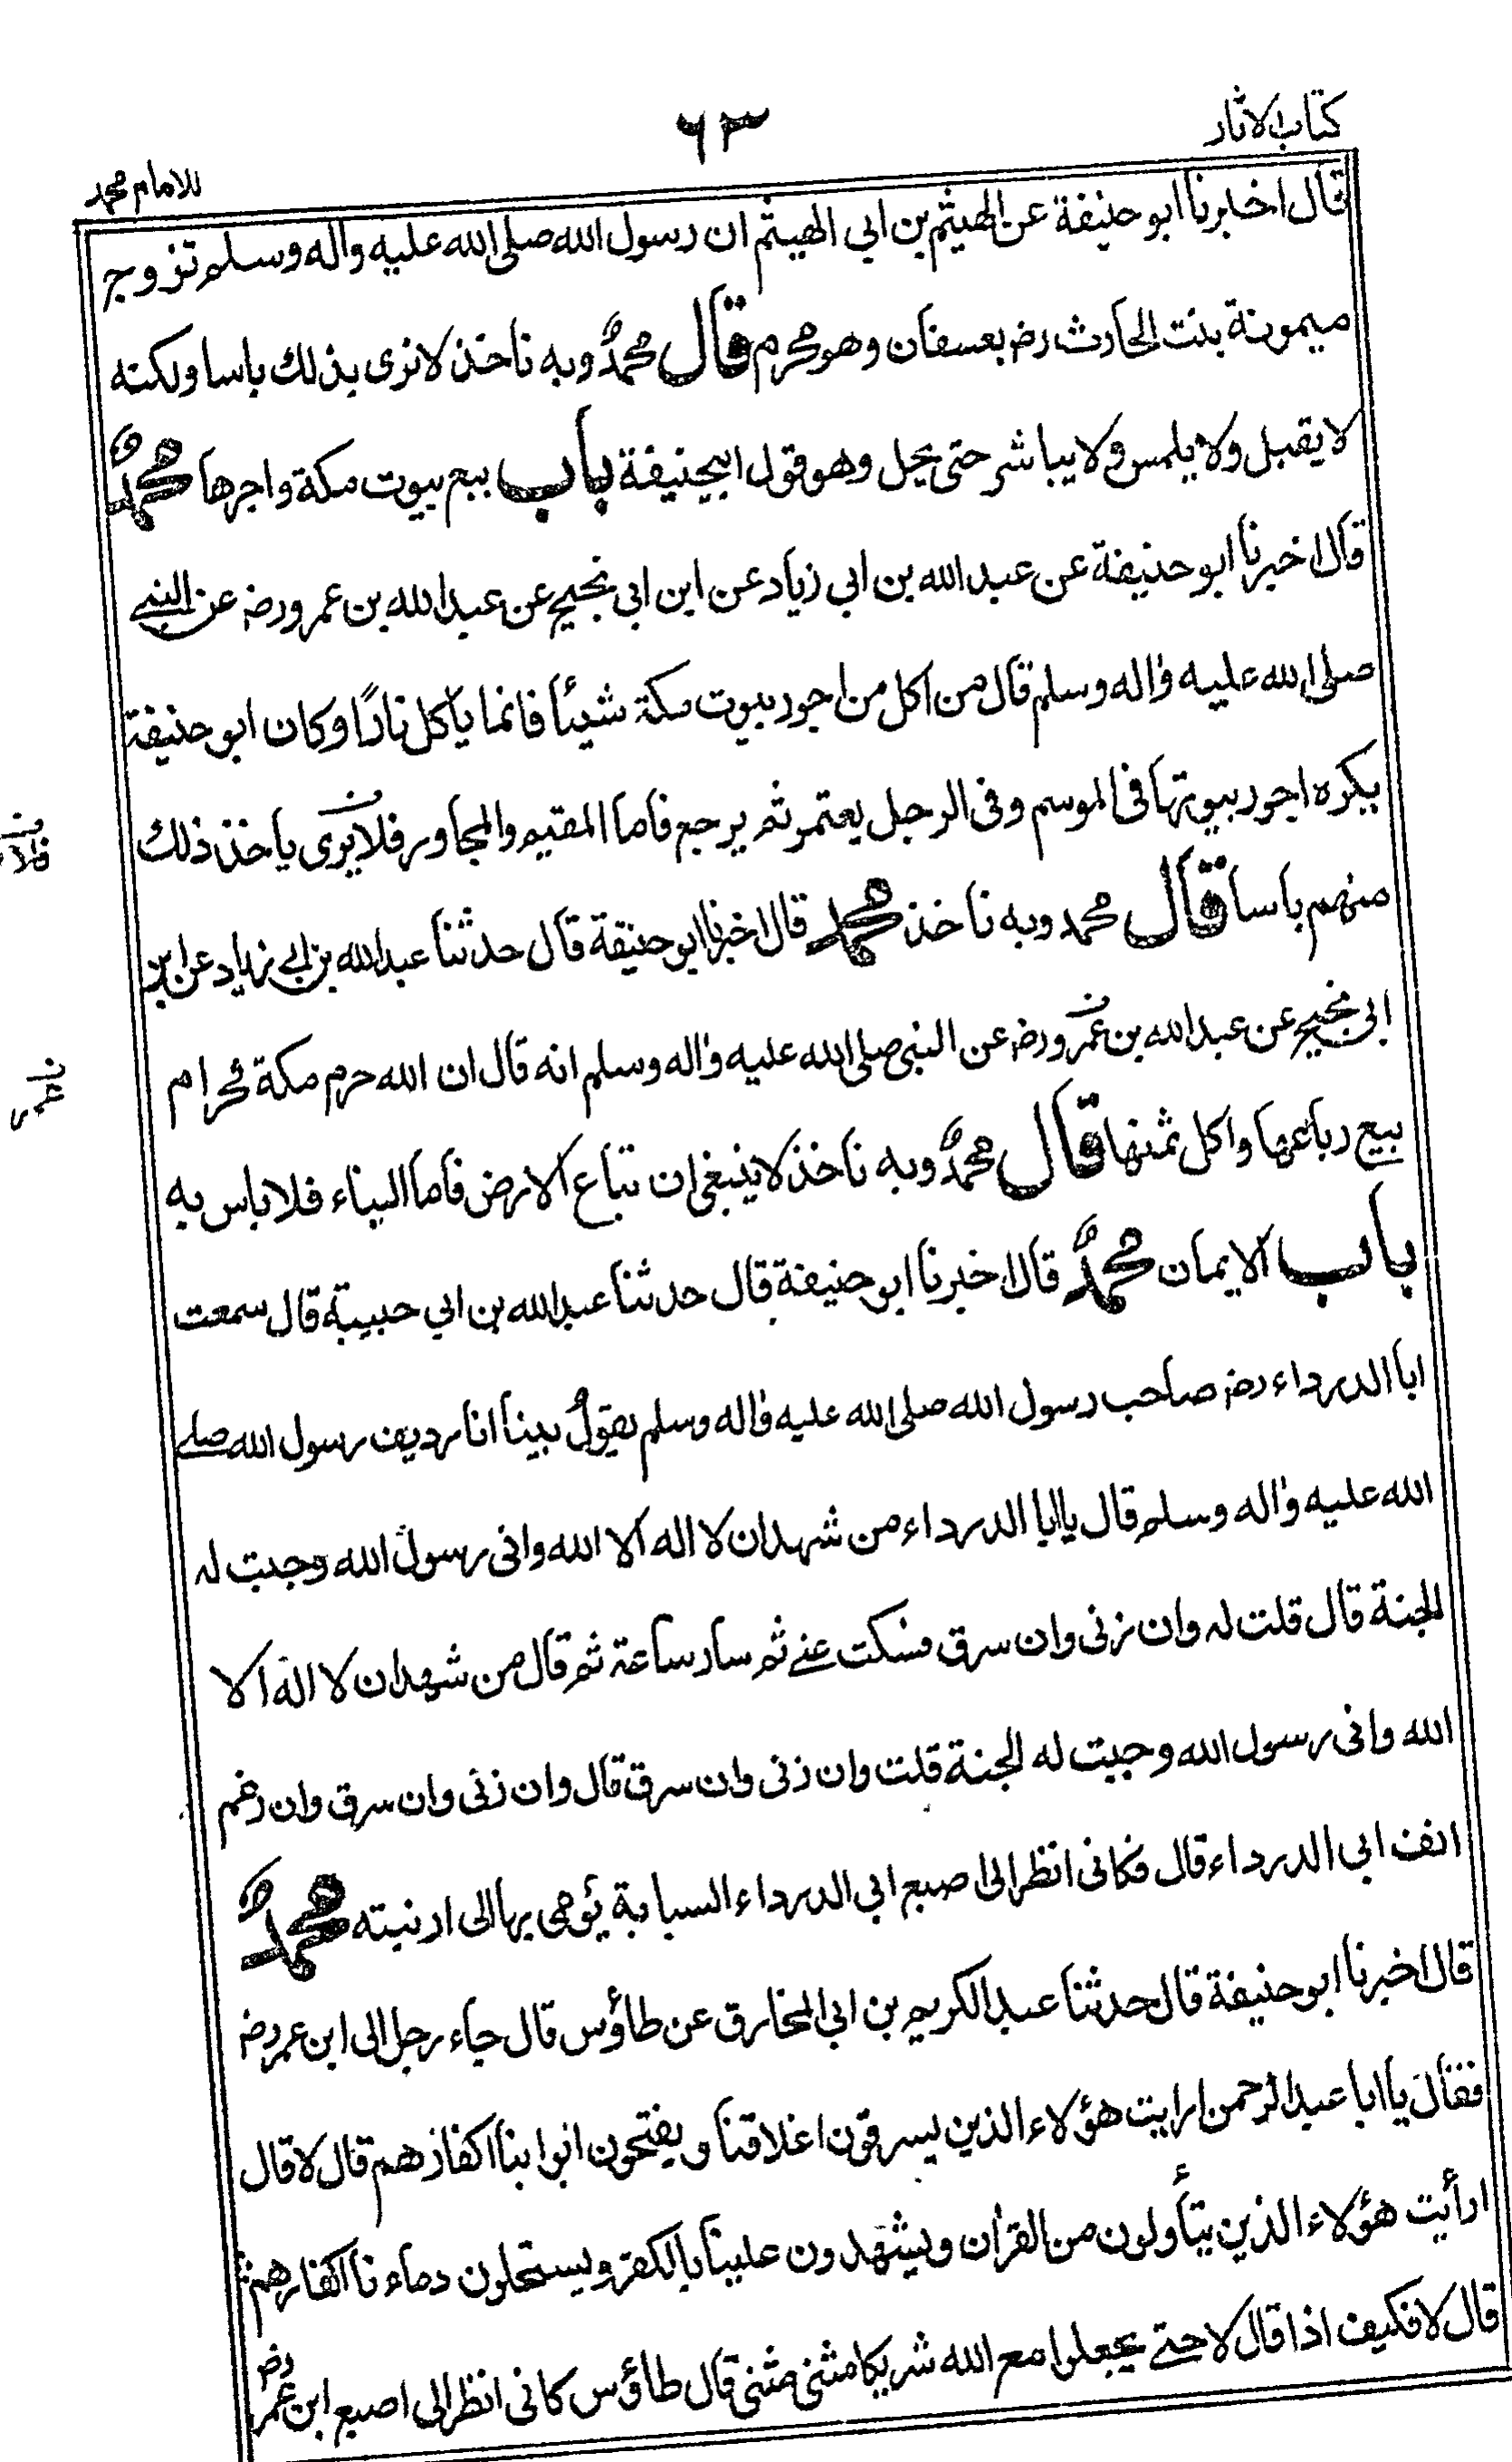 كتاب الاثار
٦٣
للامام محمد
قال اخبرنا ابو حنيفة عن الهيثم بن ابي الهيثم ان رسول الله صلى الله عليه واله وسلم تزوج
ميمونة بنت الحارث رضـ بعسفان وهو محرم قال محمدٌ وبه ناخذ لا نرى بذلك باسا ولكنه
لا يقبل ولا يلمس ولا يباشر حتى يحل وهو قول ابيحنيفة باب بيع بيوت مكة واجرها محمدٌ
قال اخبرنا ابو حنيفة عن عبد الله بن ابي زياد عن ابن ابي نجيح عن عبد الله بن عمرو رضـ عن النبي
صلى الله عليه واله وسلم قال من اكل من اجور بيوت مكة شيئا فانما ياكل نارًا وكان ابو حنيفة
يكره اجور بيوتها فى الموسم وفى الرجل يعتمر ثم يرجع فاما المقيم والمجاور فلا يرى ياخذ ذلك
منهم باسا قال محمد وبه ناخذ محمد قال اخبرنا ابو حنيفة قال حدثنا عبد الله بن ابي زياد عن ابن
ابي نجيح عن عبد الله بن عمرو رضـ عن النبى صلى الله عليه واله وسلم انه قال ان الله حرم مكة فحرام
بيع رباعها واكل ثمنها قال محمدٌ وبه ناخذ لا ينبغى ان تباع الارض فاما البناء فلا باس به
باب الايمان محمدٌ قال اخبرنا ابو حنيفة قال حدثنا عبد الله بن ابي حبيبة قال سمعت
ابا الدرداء رضـ صاحب رسول الله صلى الله عليه واله وسلم يقول بينا انا رديف رسول الله صلے
الله عليه واله وسلم قال يا ابا الدرداء من شهد ان لا اله الا الله وانى رسول الله وجبت له
الجنة قال قلت له وان زنى وان سرق فسكت عنے ثم سار ساعة ثم قال من شهد ان لا اله الا
الله وانى رسول الله وجبت له الجنة قلت وان زنى وان سرق قال وان زنى وان سرق وان رغم
انف ابي الدرداء قال فكانى انظر الى اصبع ابي الدرداء السبابة يؤمى بها الى ارنبته محمدٌ
قال اخبرنا ابو حنيفة قال حدثنا عبد الكريم بن ابي المخارق عن طاؤس قال جاء رجل الى ابن عمر رضـ
فقال يا ابا عبد الرحمن ارايت هؤلاء الذين يسرقون اغلاقنا ويفتحون ابوابنا اكفار هم قال لا قال
ارأيت هؤلاء الذين يتأولون من القران ويشهدون علينا بالكفر ويستحلون دماءنا اكفار هم
قال لا فكيف اذا قال لا حتے يجعلوا مع الله شريكا مثنى مثنى قال طاؤس كانى انظر الى اصبع ابن عمر رضـ
فلا
عمر